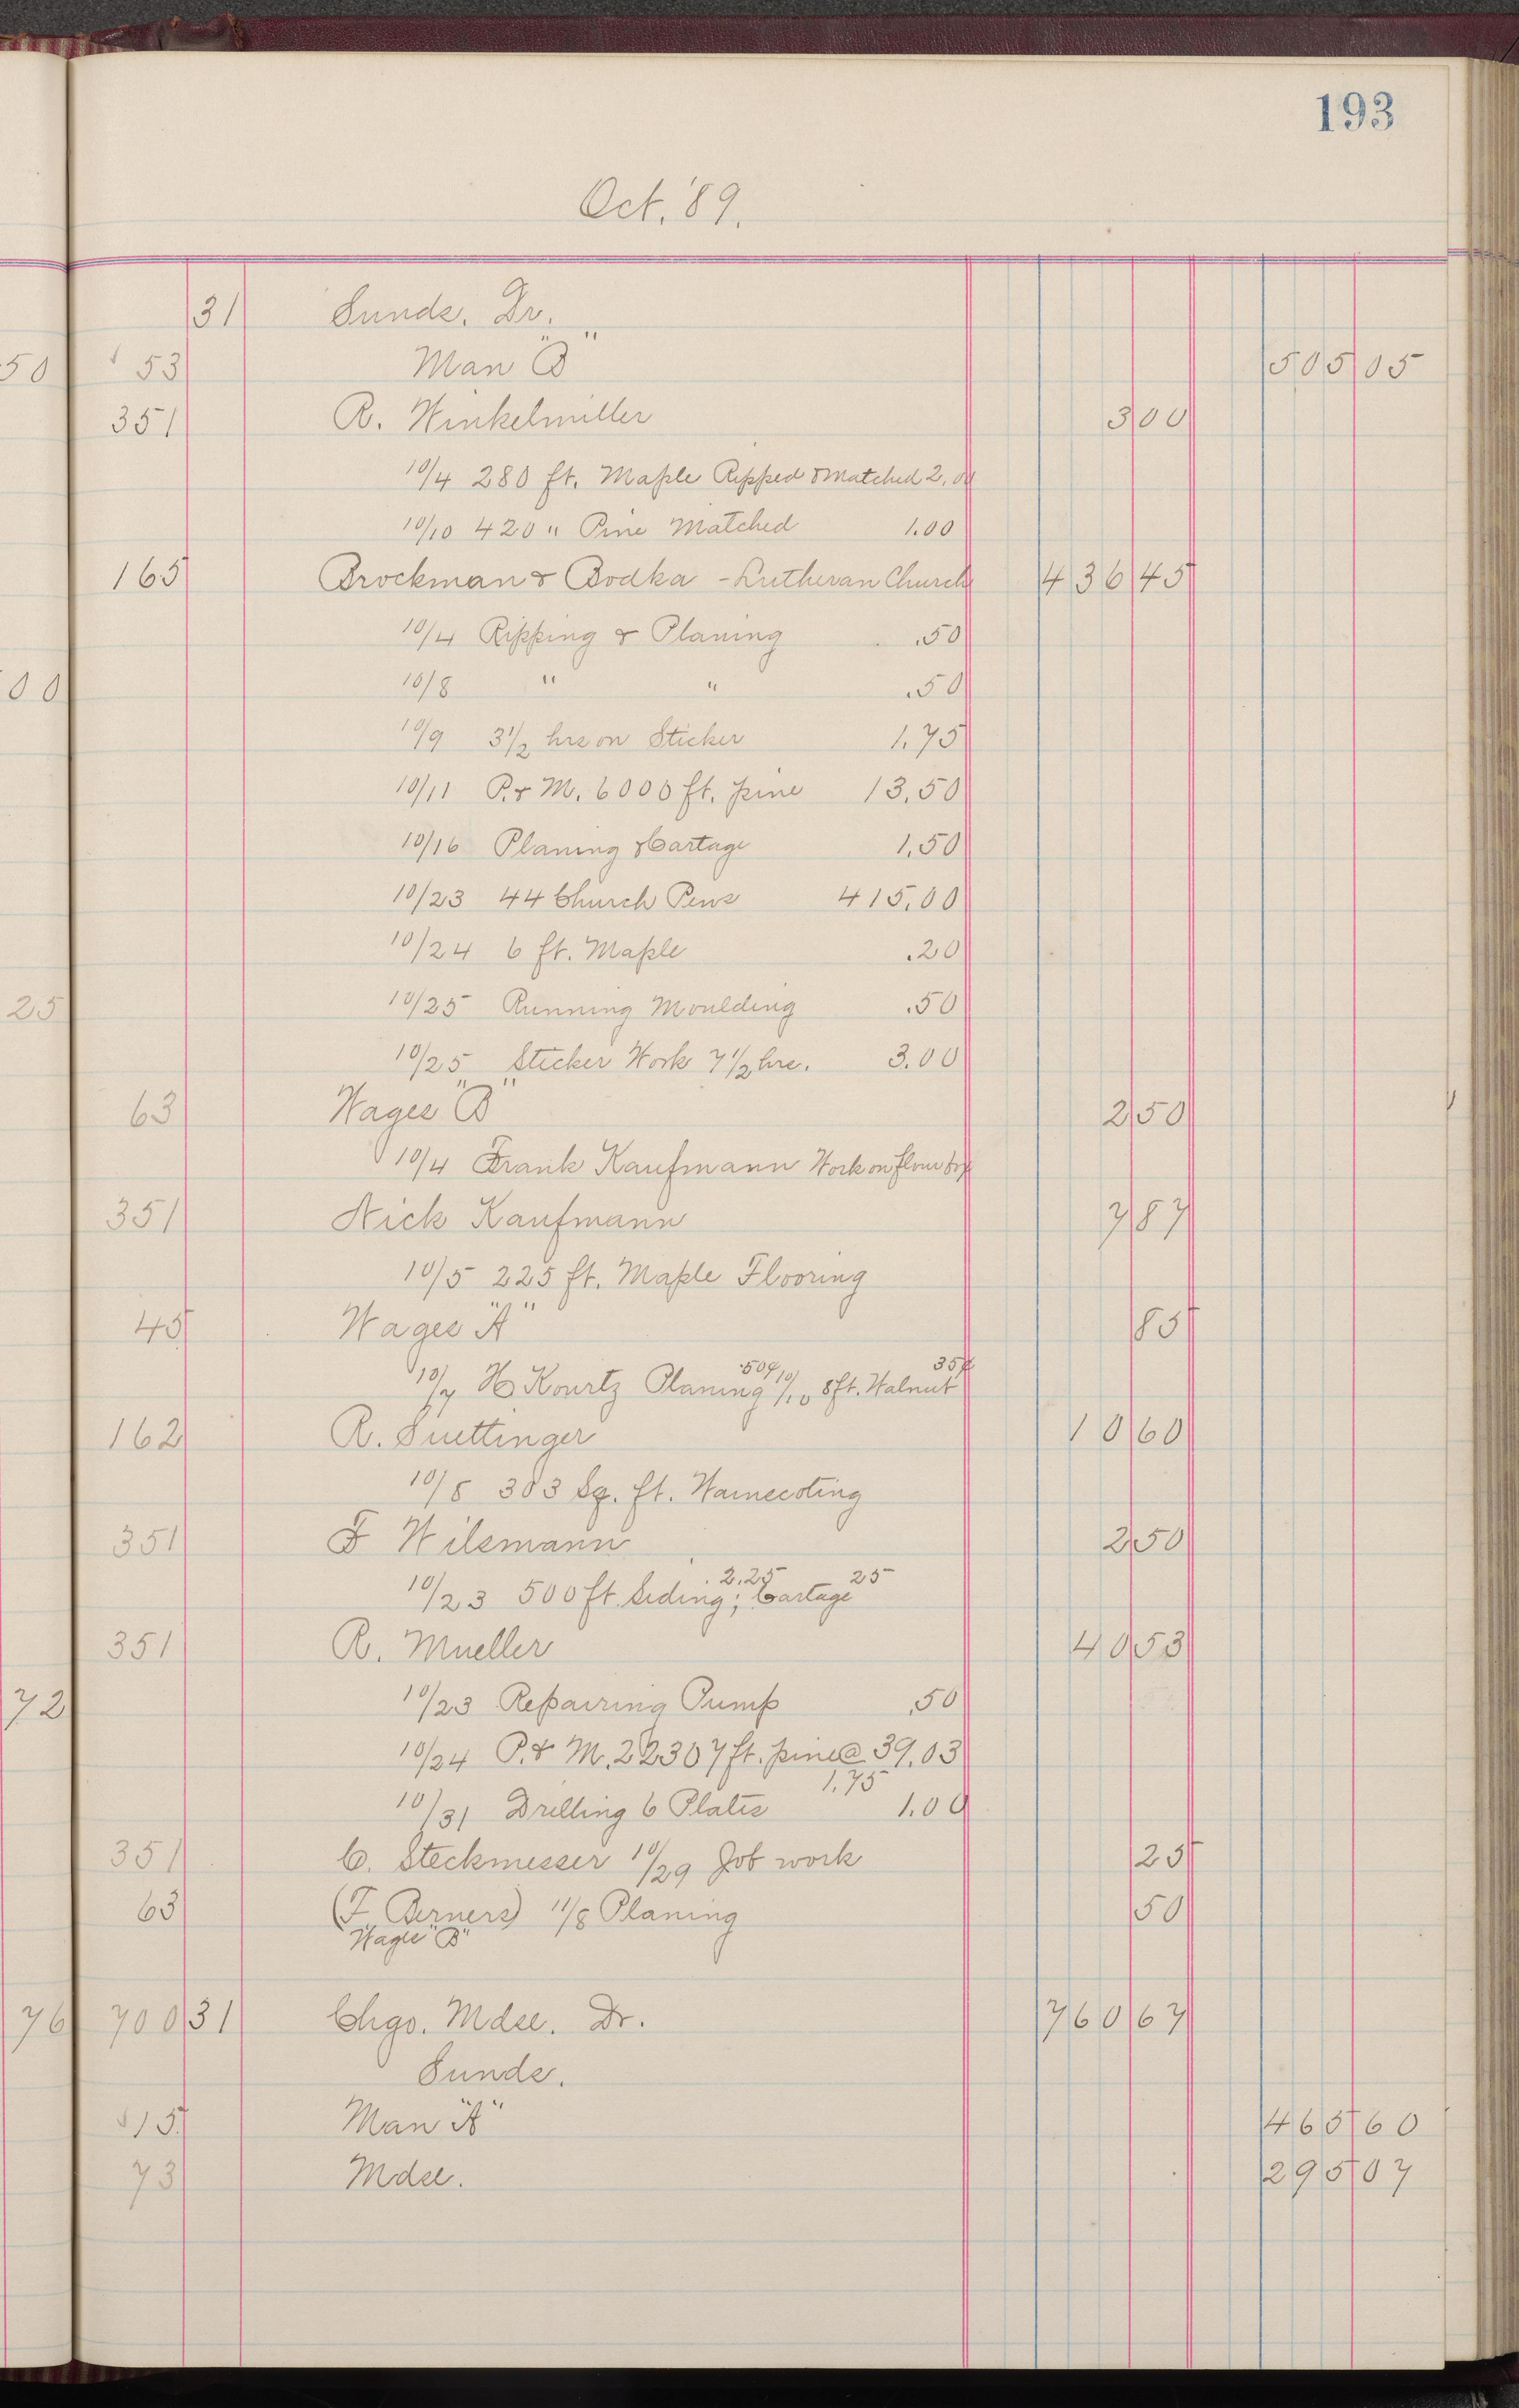 193
Oct. '89.
31 Sunds. Dr.
50 53 Man "B" 505 05
351 R. Winkelmiller 3 00
10/4 280 ft. Maple Ripped & Matched 2.00
10/10 420 " Pine Matched 1.00
165 Brockman & Bodka - Lutheran Church 436 45
10/4 Ripping & Planing .50
00 10/8 " " .50
10/9 3 1/2 hrs on Sticker 1.75
10/11 P. & M. 6000 ft. pine 13.50
10/16 Planing & Cartage 1.50
10/23 44 Church Pews 415.00
10/24 6 ft. Maple .20
25 10/25 Running Moulding .50
10/25 Sticker Work 7 1/2 hrs. 3.00
63 Wages "B" 2 50
10/4 Frank Kaufmann Work on flour
351 Nick Kaufmann 7 87
10/5 225 ft. Maple Flooring
45 Wages "A" 85
10/7 H Kourtz Planing .50¢ 10/10 8 ft. Walnut 35¢
162 R. Suettinger 10 60
10/8 303 Sq. ft. Wainscoting
351 F Wilsmann 2 50
10/23 500 ft. Siding 2.25; Cartage 25
351 R. Mueller 40 53
72 10/23 Repairing Pump .50
10/24 P. & M. 22307 ft. pine @ 1.75 39.03
10/31 Drilling 6 Plates 1.00
351 C. Steckmesser 10/29 Job work 25
63 (F Berners) 11/8 Planing 50
Wages "B"
76 700 31 Chgo. Mdse. Dr. 760 67
Sunds.
15 Man "A" 465 60
73 Mdse. 295 07